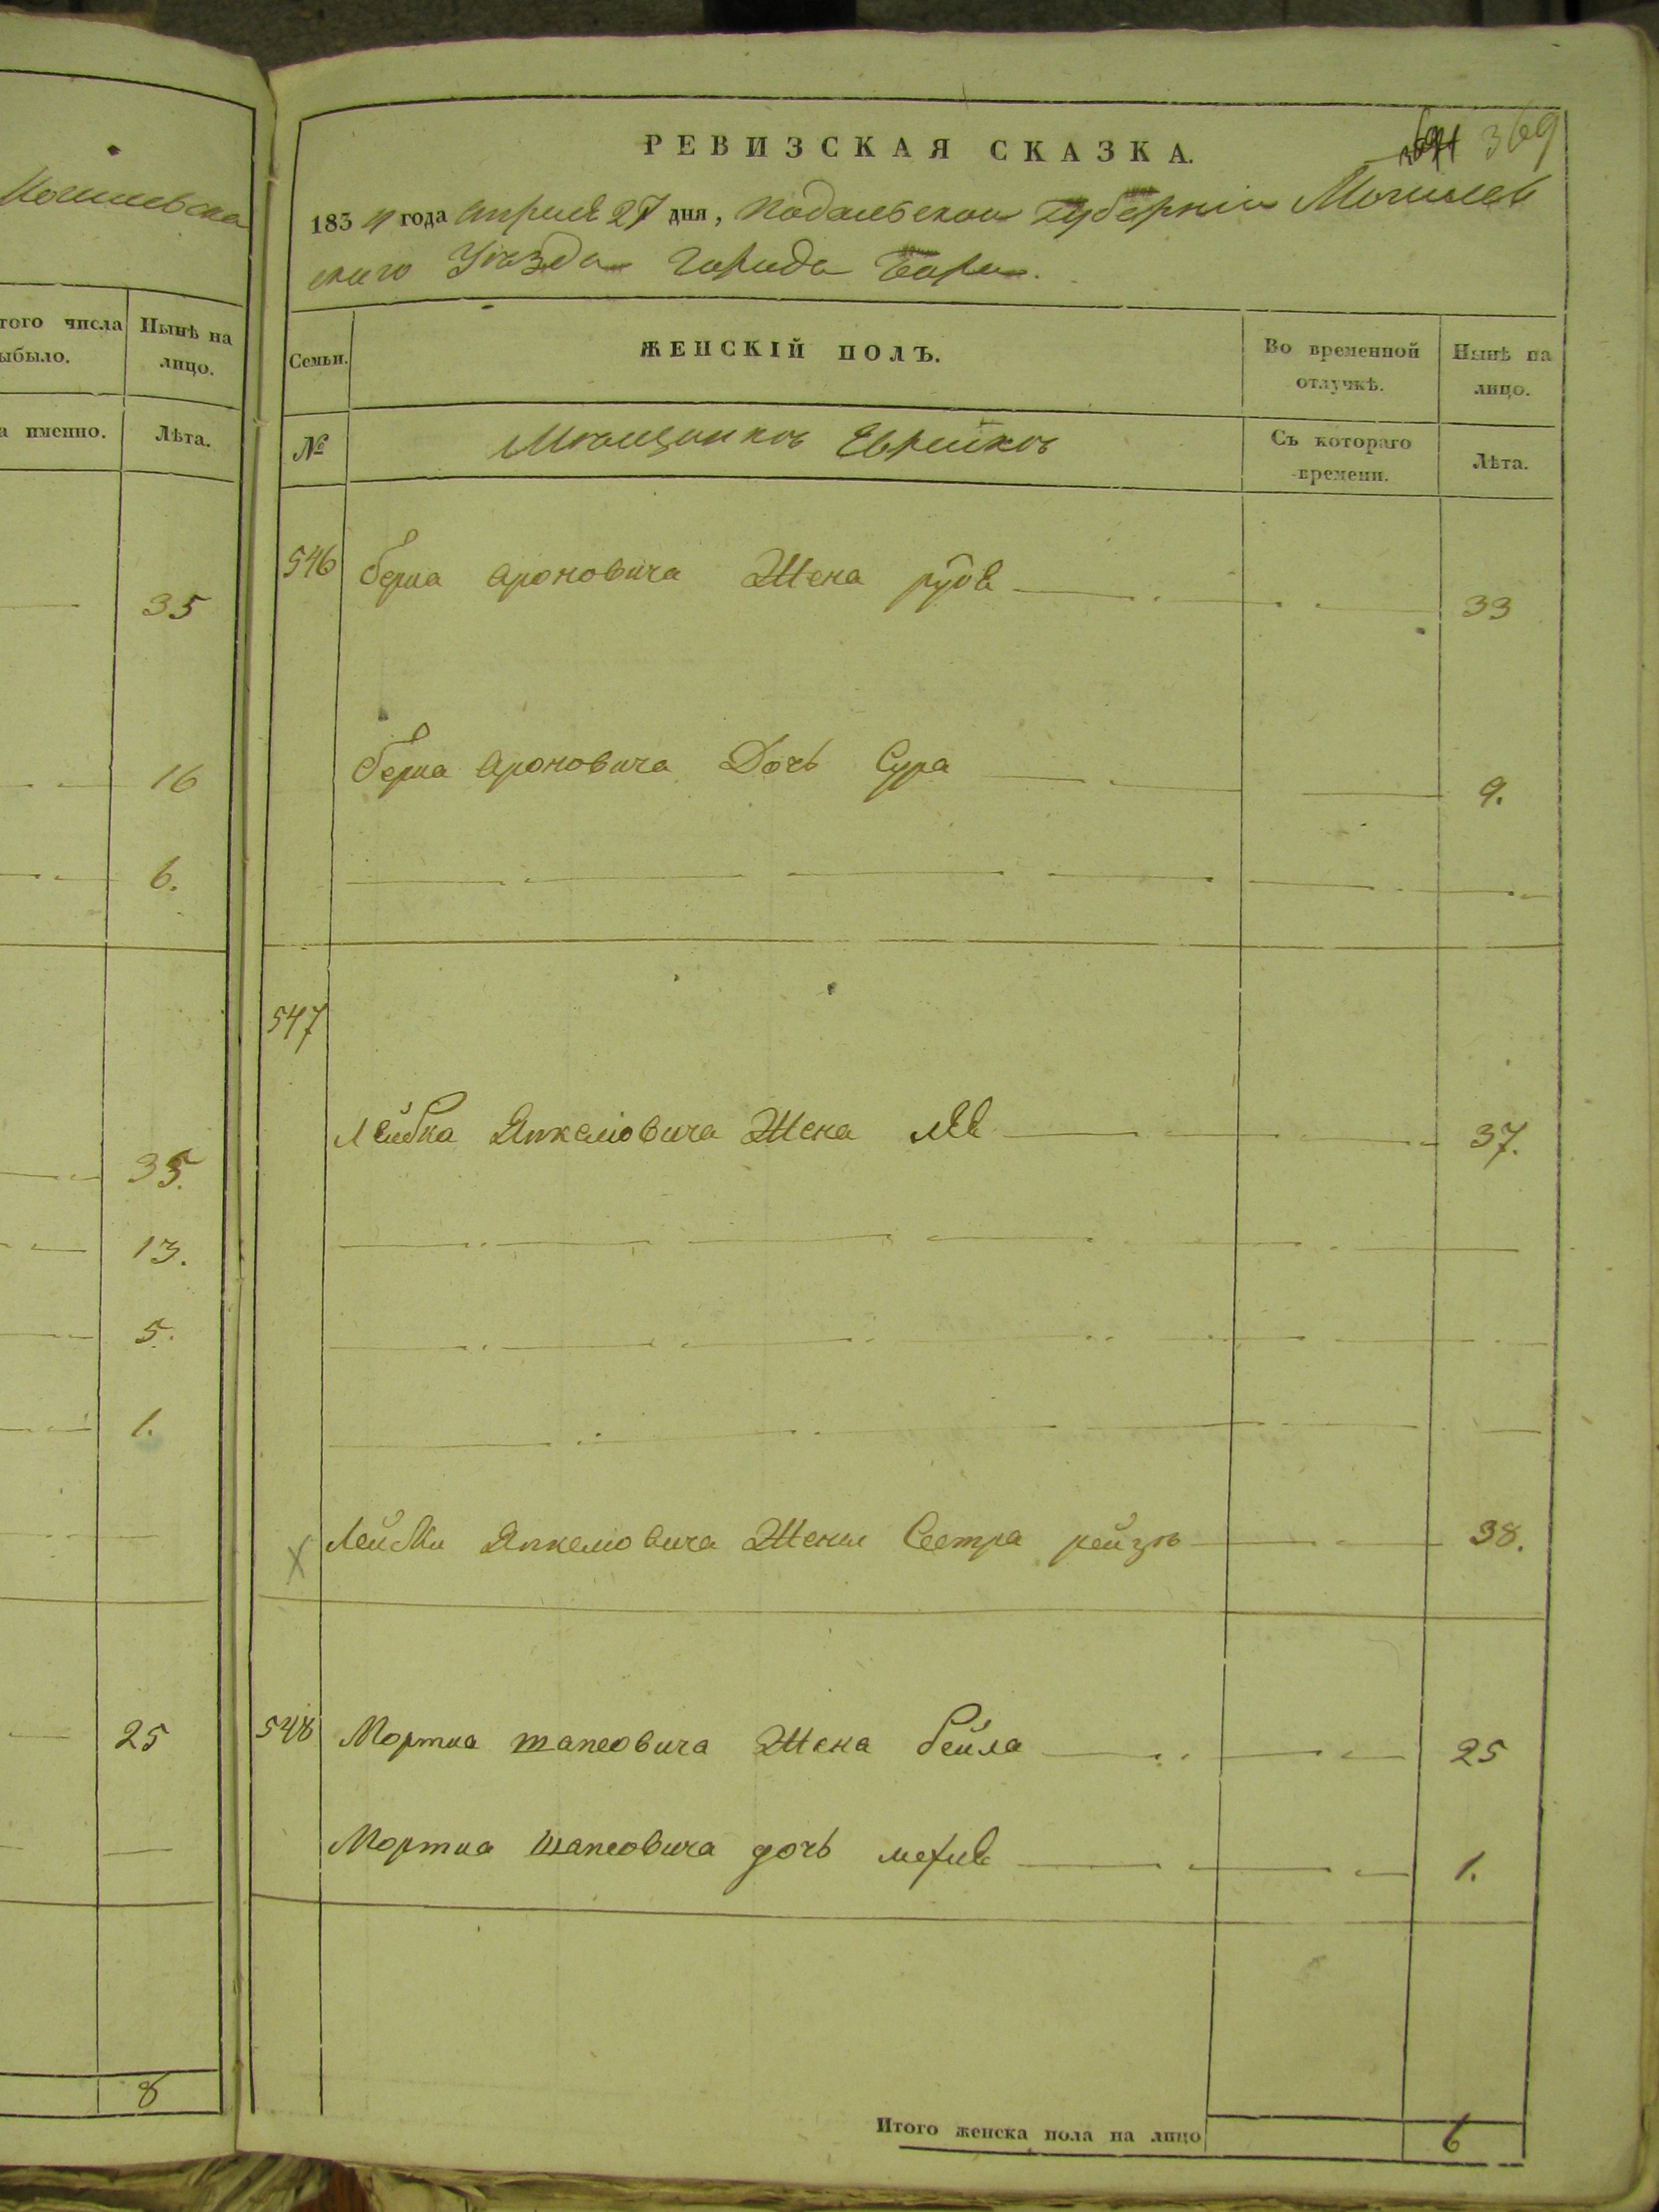 Могилевска
того числа
выбыло.
Нынѣ на
лицо.
а именно.
Лѣта.
35
16
6.
35.
13.
5.
1.
25
8
369
РЕВИЗСКАЯ СКАЗКА.
183 года Апреля 27 дня, Подольской Губерніи Могилев
скаго Уѣзда Города Бара.
Семьи.
ЖЕНСКІЙ ПОЛЪ.
Во временной
отлучкѣ.
Нынѣ на
лицо.
№
Мѣщанкъ Еврейкъ
Съ котораго
времени.
Лѣта.
546 Берка Ароновича Жена 33
Берка Ароновича Дочь Сура 9.
547
Лейбка Янкелiовича Жена 37.
Лейбки Янкелиовича Жены Сестра рейзя 38.
548 Мортка шапсовича Жена бейла 25
Мортка шапсовича дочь 1.
Итого женска пола на лицо 6